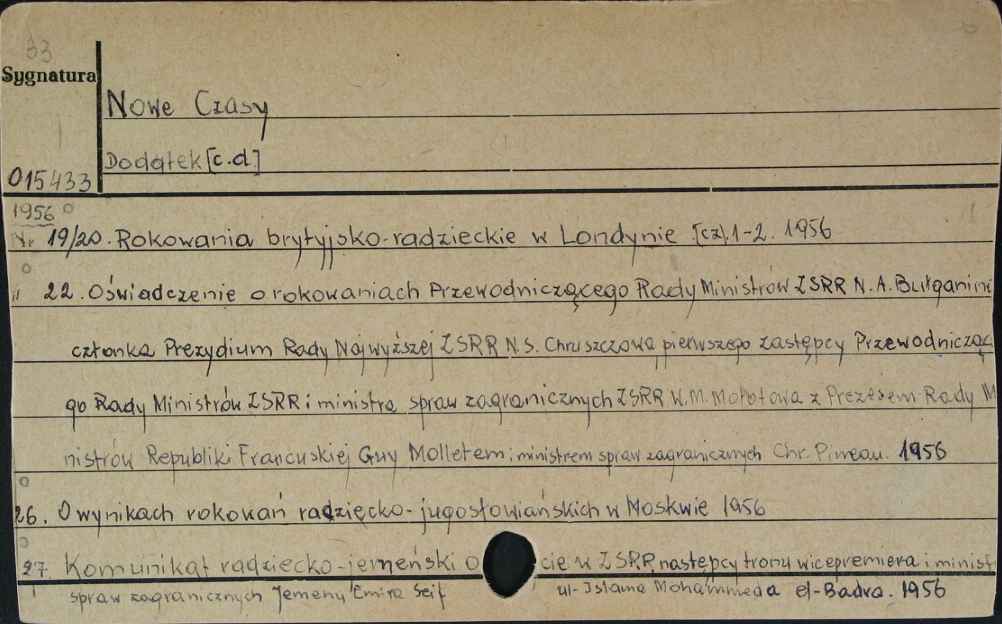 33
Sygnatura
Nowe Czasy
Dodatek [c.d.]
015433
1956
Nr 19/20. Rokowania brytyjsko-radzieckie w Londynie [cz]. 1-2. 1956
" 22. Oświadczenie o rokowaniach Przewodniczącego Rady Ministrów ZSRR N. A. Bułganina
członka Prezydium Rady Najwyższej ZSRR N. S. Chruszczowa pierwszego zastępcy Przewodniczące
go Rady Ministrów ZSRR i ministra spraw zagranicznych ZSRR W. M. Mołotowa z Prezesem Rady Mi
nistrów Republiki Francuskiej Guy Molletem i ministrem spraw zagranicznych Chr. Pineau. 1956
26. O wynikach rokowań radziecko-jugosłowiańskich w Moskwie 1956
27. Komunikat radziecko-jemeński o cie w ZSRR następcy tronu wicepremiera i minist
spraw zagranicznych Jemenu Emira Seif ul-Islama Mohammeda el-Badra. 1956